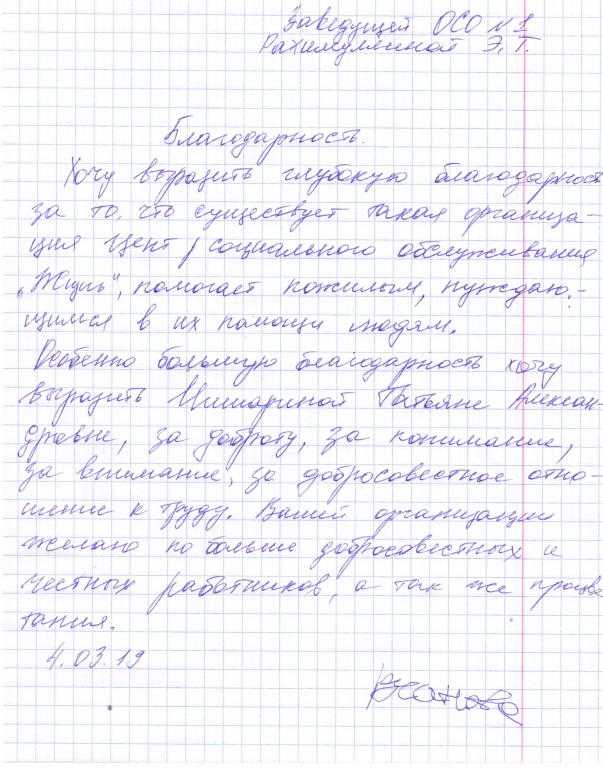 Заведущей ОСО №1
Рахимуллиной Э.Т.
Благодарность.
Хочу выразить глубокую благодарност
за то, что существует такая организа-
ция Цент социального обслуживания
„Жизнь", помогает пожилым, нуждаю-
щимся в их помощи людям.
Особенно большую благодарность хочу
выразить Татьяне Алексан-
дровне, за доброту, за понимание,
за внимание, за добросовестное отно-
шение к труду. Вашей организации
желаю по больше добросовестных и
честных работников, а так же процве
тания.
4.03.19